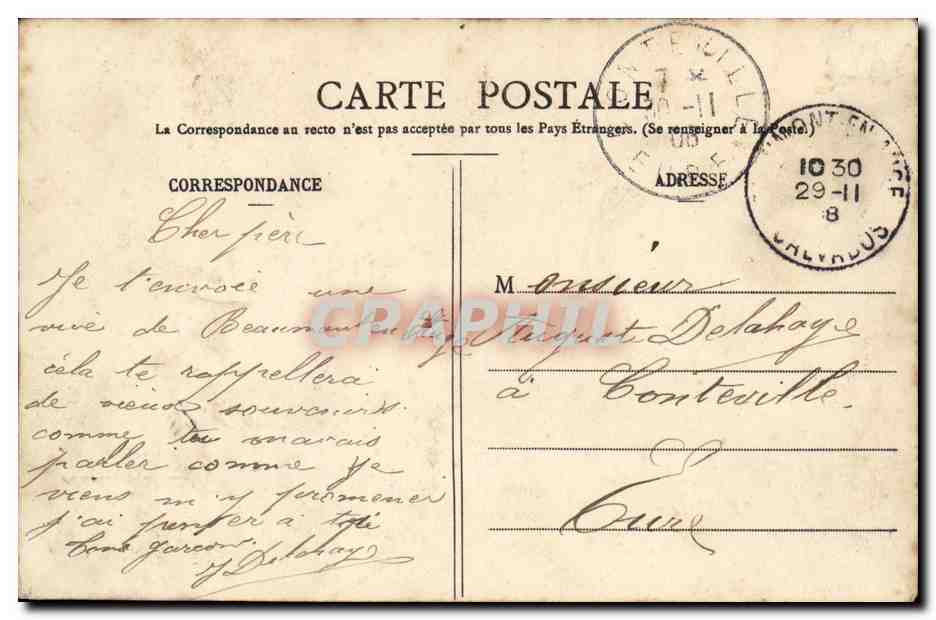 CARTE POSTALE
La Correspondance au recto n'est pas acceptée par tous les Pays Étrangers. (Se renseigner à la Poste)
CORRESPONDANCE
Cher père
Je t'envoie une
vive de Beaumont en Auge
céla te rappellera
de vieux souvenirs
comme tu mavais
parler comme je
viens m'y promener
j'ai penser à toi
Ton garçon
J Delahaye
ADRESSE
Monsieur
August Delahaye
à Conteville
Eure
CONTEVILLE
7
30-11
08
EURE
MONT-EN-AUGE
10 30
29-11
8
CALVADOS
CPAPHIL